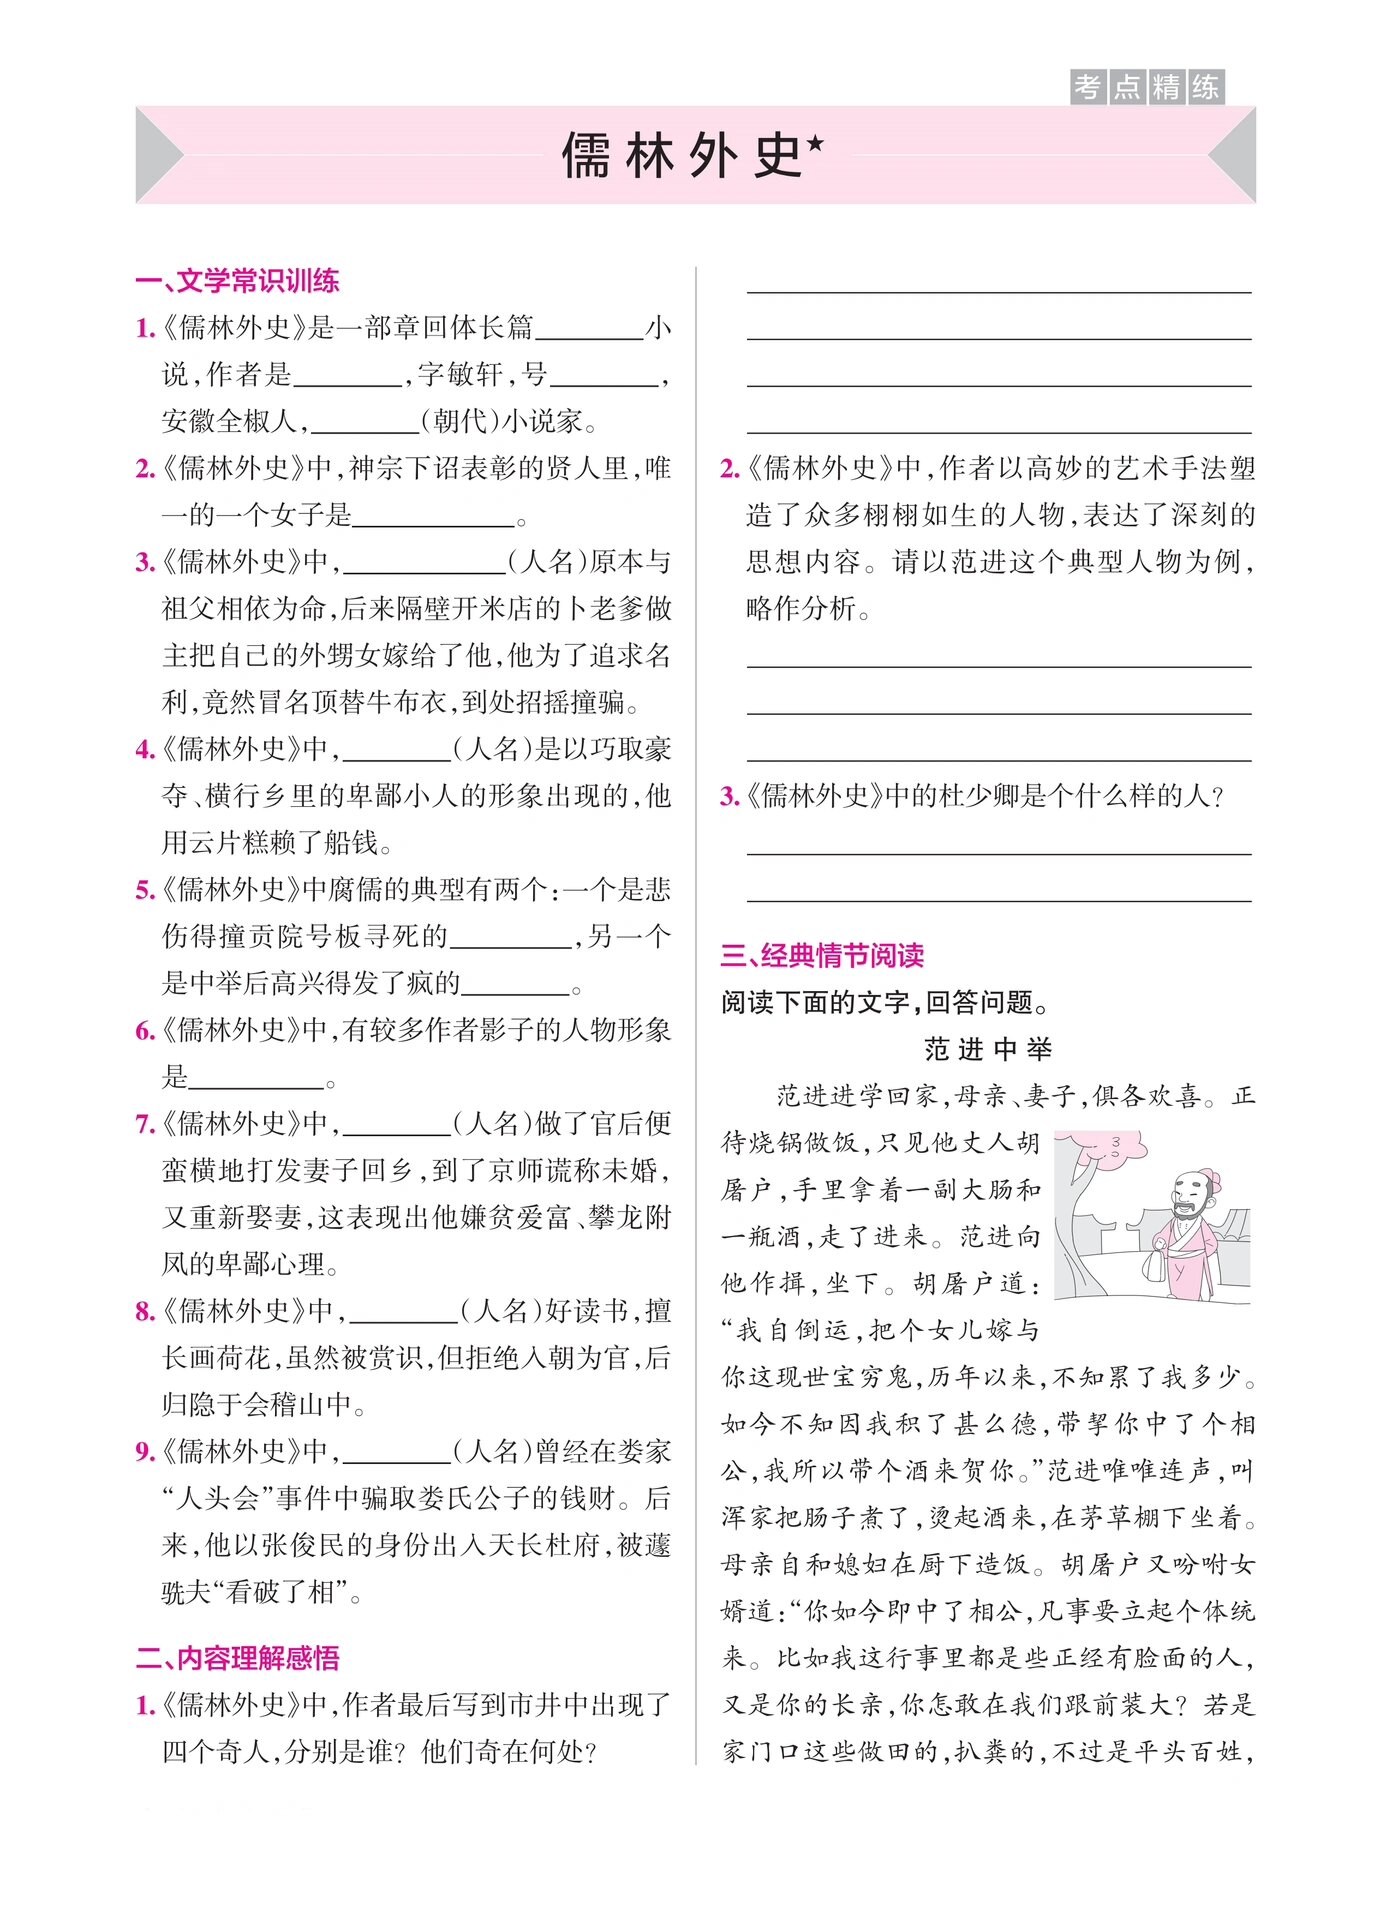 考点精练
儒林外史★
一、文学常识训练
1.《儒林外史》是一部章回体长篇________小
说,作者是________,字敏轩,号________,
安徽全椒人,________(朝代)小说家。
2.《儒林外史》中,神宗下诏表彰的贤人里,唯
一的一个女子是____________。
3.《儒林外史》中,____________(人名)原本与
祖父相依为命,后来隔壁开米店的卜老爹做
主把自己的外甥女嫁给了他,他为了追求名
利,竟然冒名顶替牛布衣,到处招摇撞骗。
4.《儒林外史》中,________(人名)是以巧取豪
夺、横行乡里的卑鄙小人的形象出现的,他
用云片糕赖了船钱。
5.《儒林外史》中腐儒的典型有两个:一个是悲
伤得撞贡院号板寻死的_________,另一个
是中举后高兴得发了疯的________。
6.《儒林外史》中,有较多作者影子的人物形象
是__________。
7.《儒林外史》中,________(人名)做了官后便
蛮横地打发妻子回乡,到了京师谎称未婚,
又重新娶妻,这表现出他嫌贫爱富、攀龙附
凤的卑鄙心理。
8.《儒林外史》中,________(人名)好读书,擅
长画荷花,虽然被赏识,但拒绝入朝为官,后
归隐于会稽山中。
9.《儒林外史》中,________(人名)曾经在娄家
“人头会”事件中骗取娄氏公子的钱财。后
来,他以张俊民的身份出入天长杜府,被蘧
駪夫“看破了相”。
二、内容理解感悟
1.《儒林外史》中,作者最后写到市井中出现了
四个奇人,分别是谁?他们奇在何处?
2.《儒林外史》中,作者以高妙的艺术手法塑
造了众多栩栩如生的人物,表达了深刻的
思想内容。请以范进这个典型人物为例,
略作分析。
3.《儒林外史》中的杜少卿是个什么样的人?
三、经典情节阅读
阅读下面的文字,回答问题。
范进中举
范进进学回家,母亲、妻子,俱各欢喜。正
待烧锅做饭,只见他丈人胡
屠户,手里拿着一副大肠和
一瓶酒,走了进来。范进向
他作揖,坐下。胡屠户道:
“我自倒运,把个女儿嫁与
你这现世宝穷鬼,历年以来,不知累了我多少。
如今不知因我积了甚么德,带挈你中了个相
公,我所以带个酒来贺你。”范进唯唯连声,叫
浑家把肠子煮了,烫起酒来,在茅草棚下坐着。
母亲自和媳妇在厨下造饭。胡屠户又吩咐女
婿道:“你如今即中了相公,凡事要立起个体统
来。比如我这行事里都是些正经有脸面的人,
又是你的长亲,你怎敢在我们跟前装大?若是
家门口这些做田的,扒粪的,不过是平头百姓,